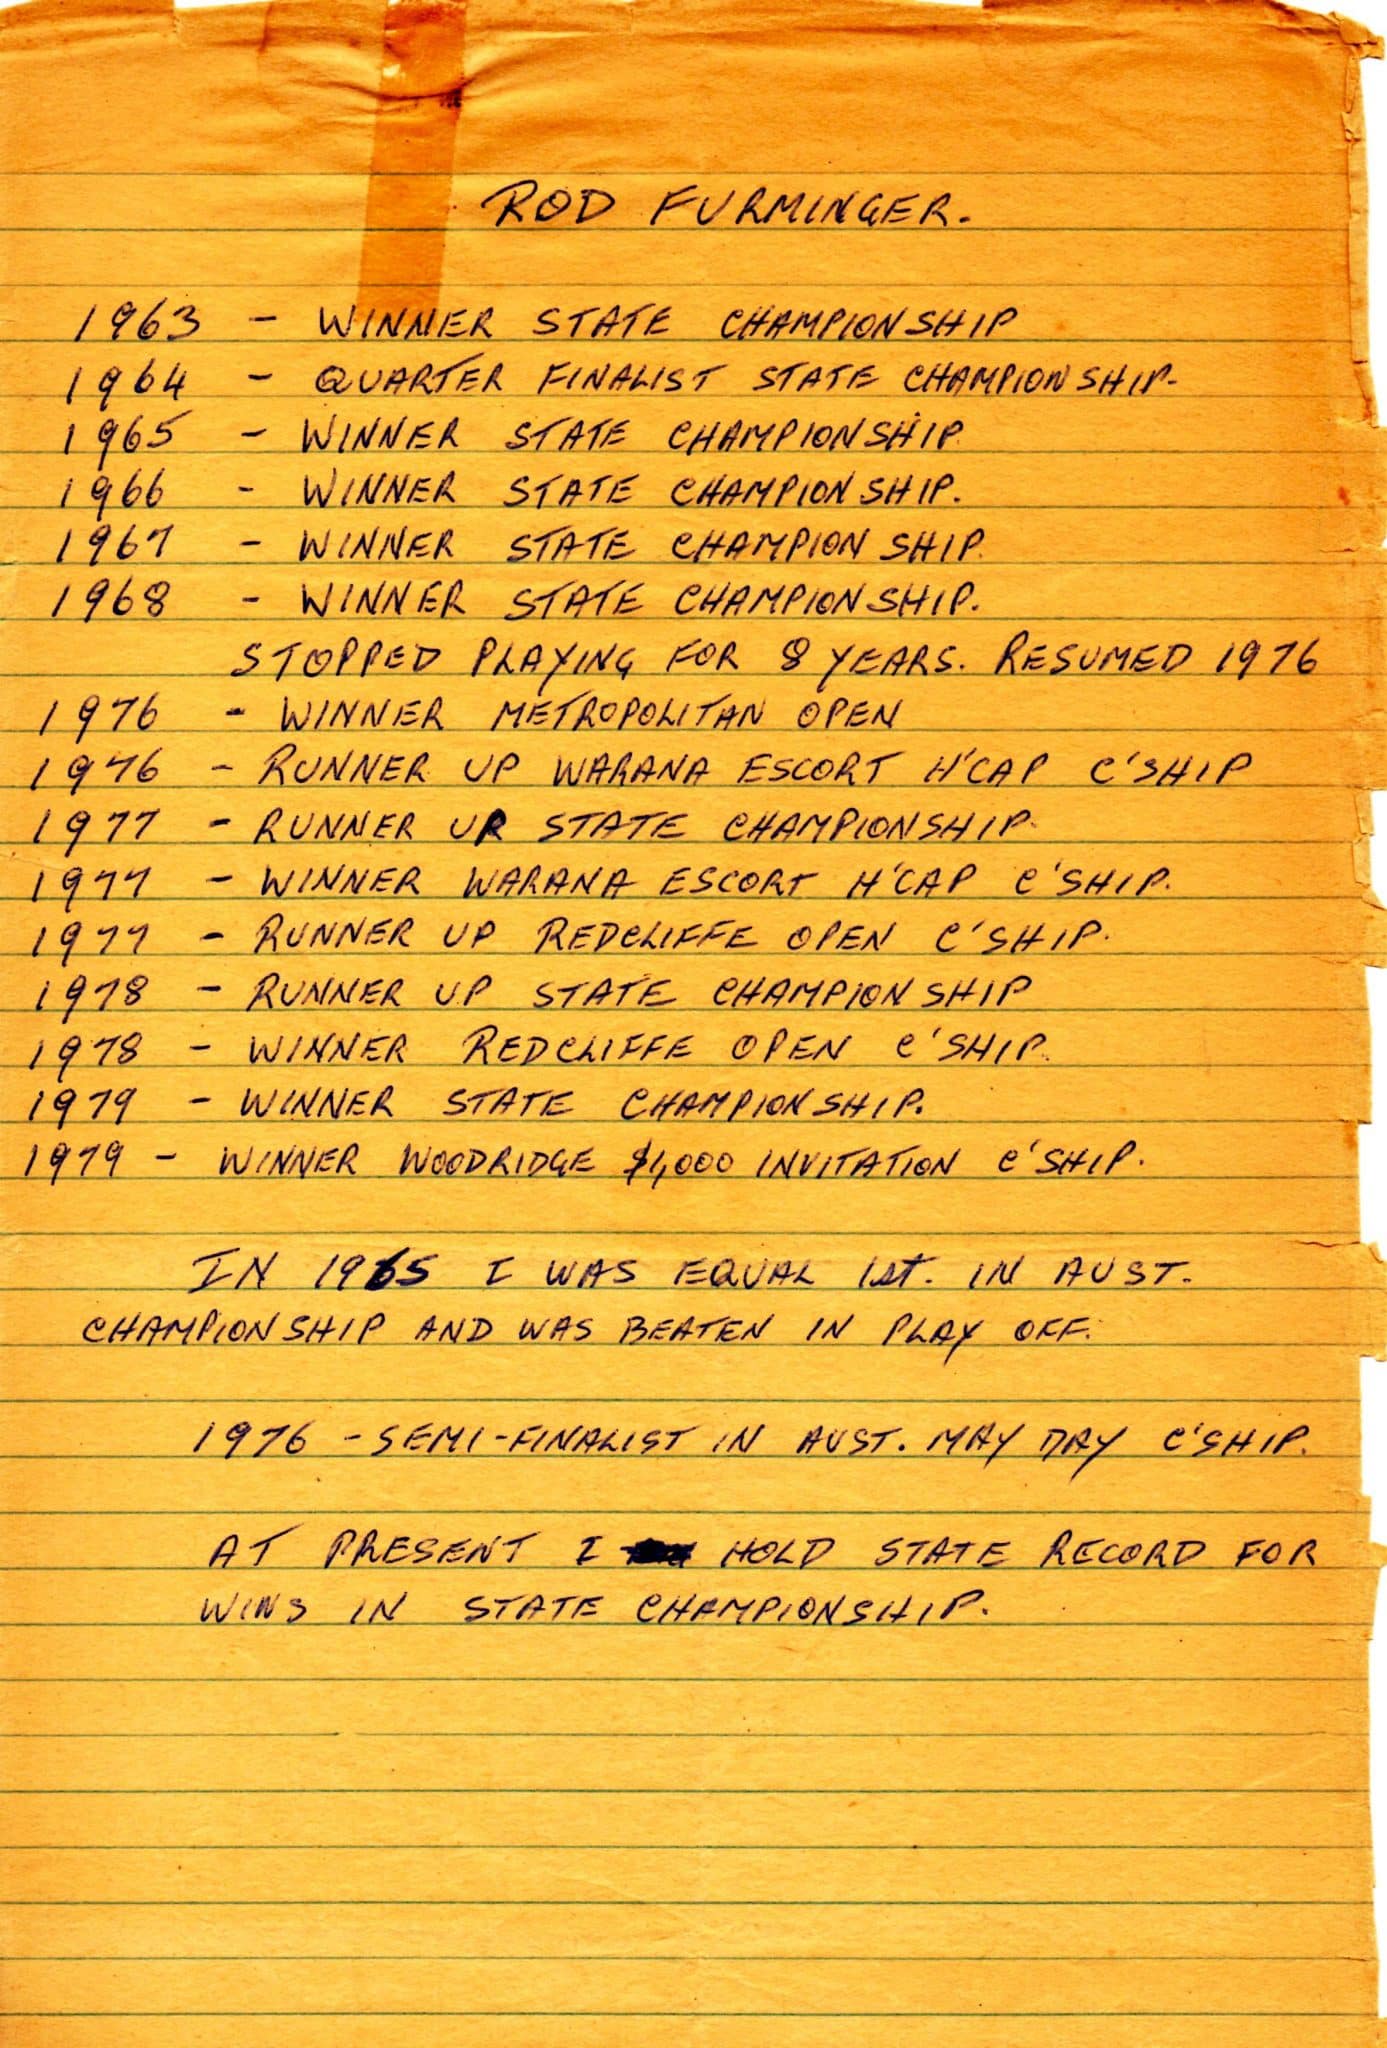 ROD FURMINGER.
1963 - WINNER STATE CHAMPIONSHIP
1964 - QUARTER FINALIST STATE CHAMPIONSHIP.
1965 - WINNER STATE CHAMPIONSHIP.
1966 - WINNER STATE CHAMPIONSHIP.
1967 - WINNER STATE CHAMPIONSHIP.
1968 - WINNER STATE CHAMPIONSHIP.
STOPPED PLAYING FOR 8 YEARS. RESUMED 1976
1976 - WINNER METROPOLITAN OPEN
1976 - RUNNER UP WARANA ESCORT H'CAP C'SHIP
1977 - RUNNER UP STATE CHAMPIONSHIP.
1977 - WINNER WARANA ESCORT H'CAP C'SHIP.
1977 - RUNNER UP REDCLIFFE OPEN C'SHIP.
1978 - RUNNER UP STATE CHAMPIONSHIP
1978 - WINNER REDCLIFFE OPEN C'SHIP.
1979 - WINNER STATE CHAMPIONSHIP.
1979 - WINNER WOODRIDGE $1,000 INVITATION C'SHIP.
IN 1965 I WAS EQUAL 1st. IN AUST.
CHAMPIONSHIP AND WAS BEATEN IN PLAY OFF.
1976 - SEMI-FINALIST IN AUST. MAY DAY C'SHIP.
AT PRESENT I HOLD STATE RECORD FOR
WINS IN STATE CHAMPIONSHIP.